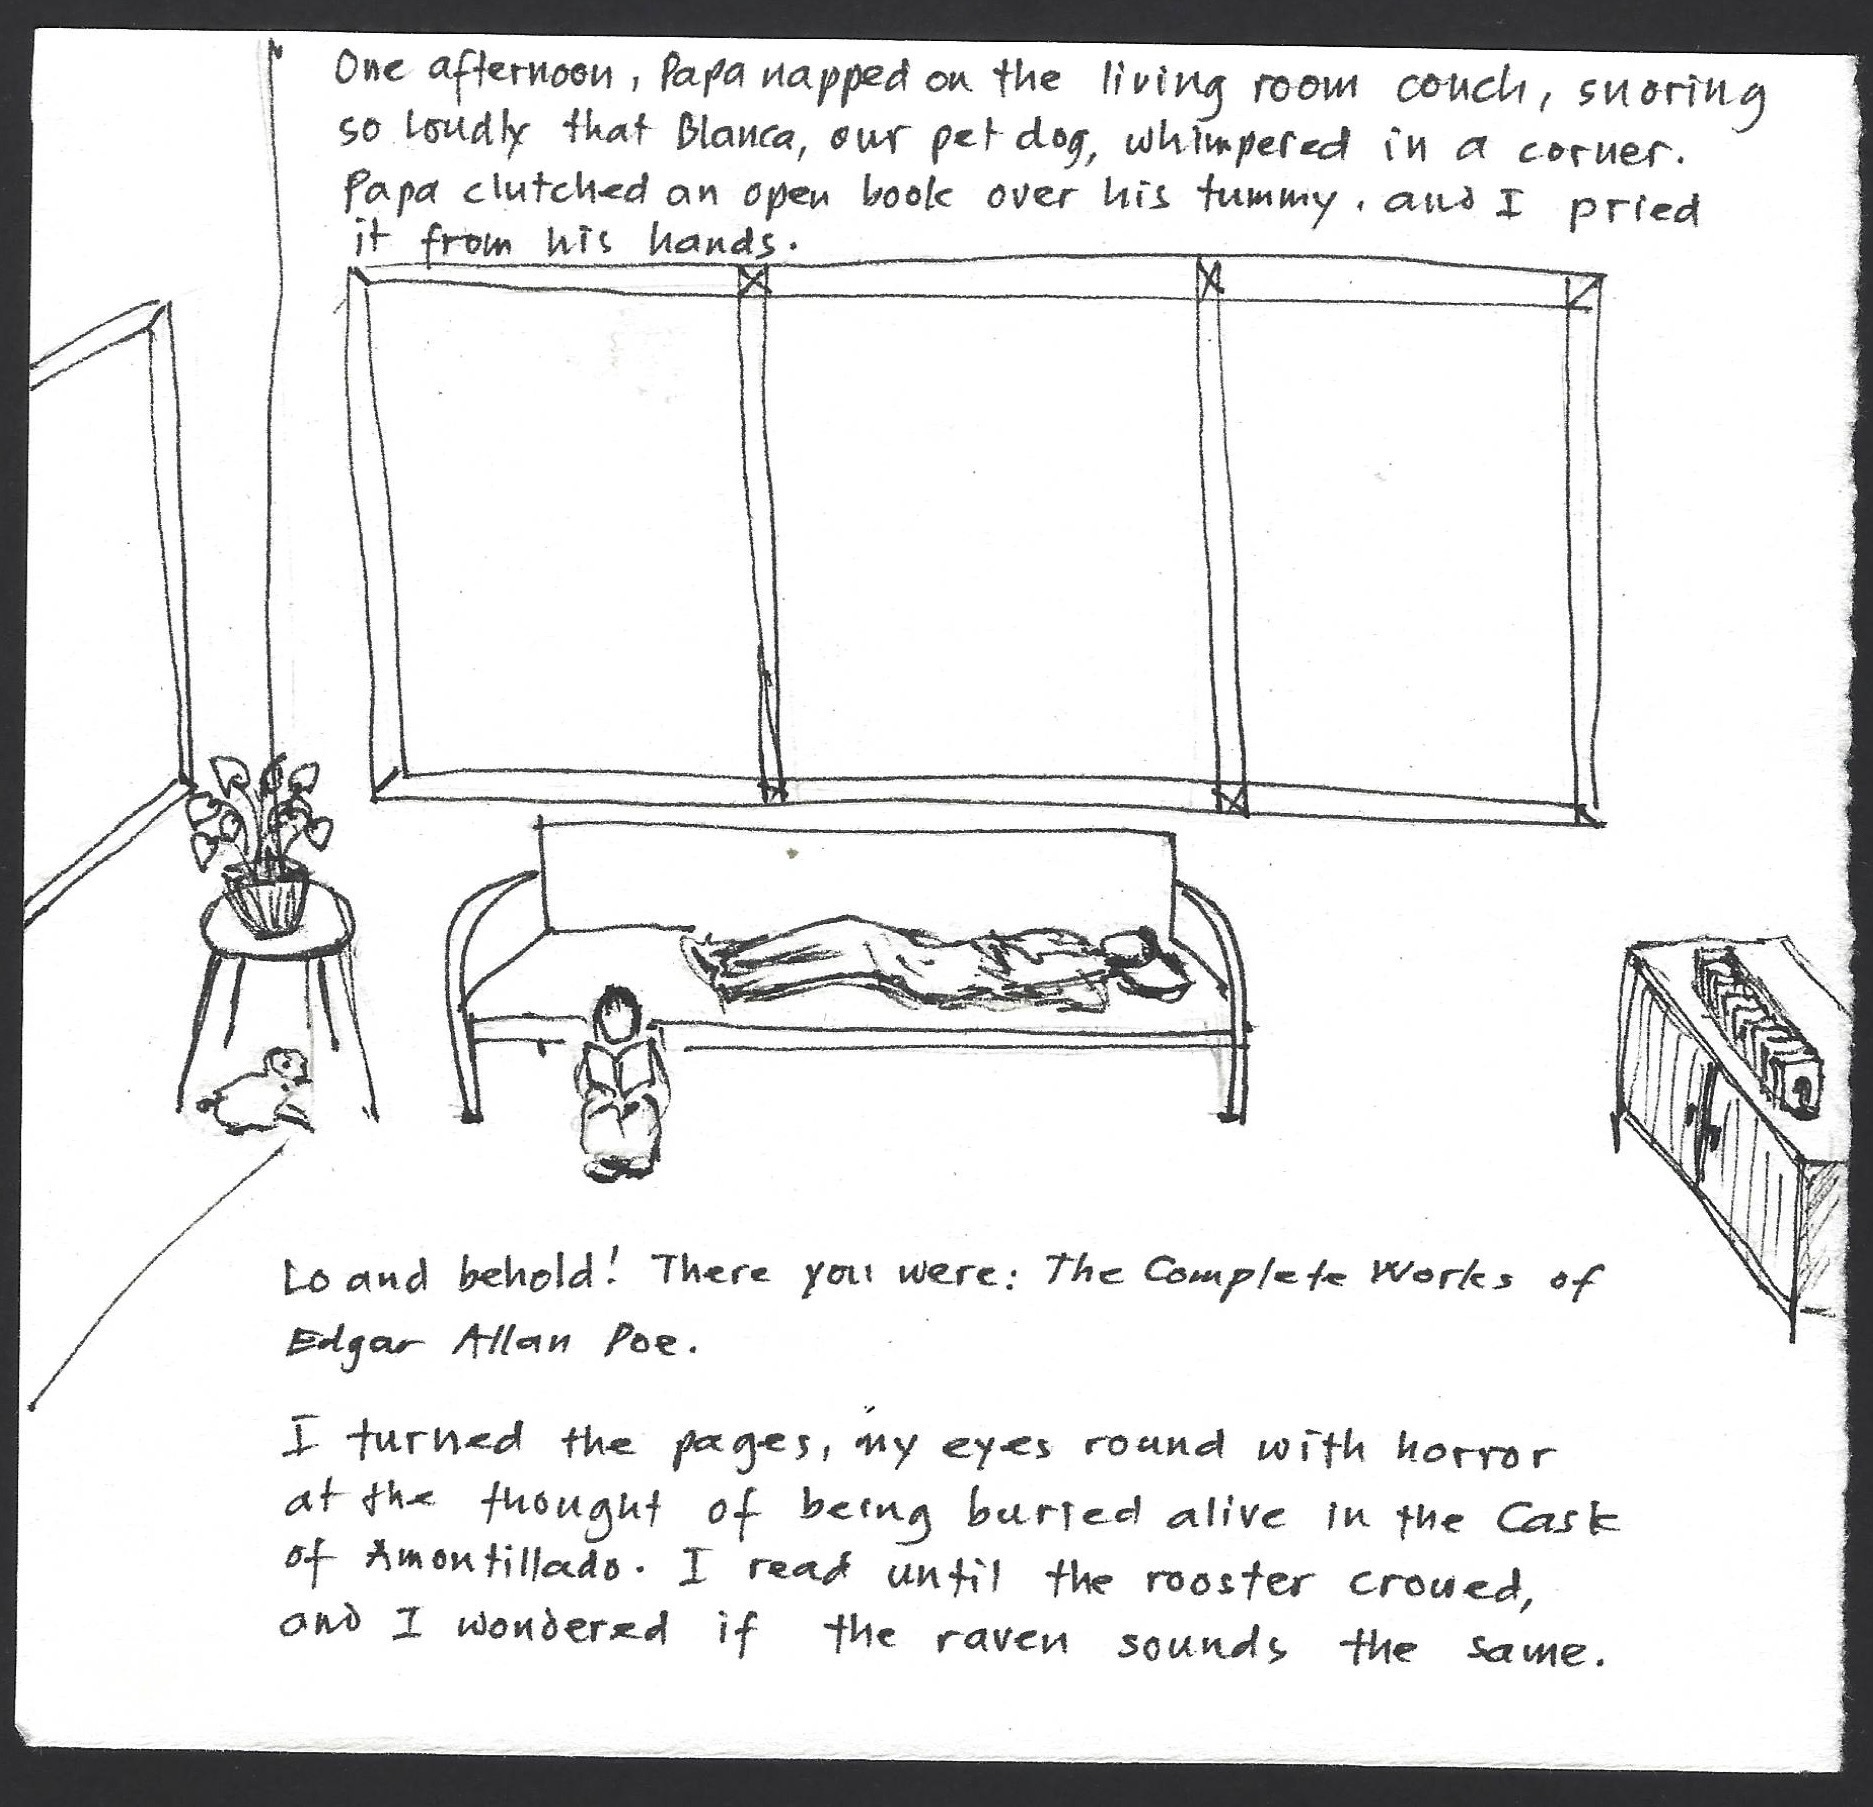 One afternoon, Papa napped on the living room couch, snoring
so loudly that Blanca, our pet dog, whimpered in a corner.
Papa clutched an open book over his tummy. and I pried
it from his hands.
Lo and behold! There you were: The Complete Works of
Edgar Allan Poe.
I turned the pages, my eyes round with horror
at the thought of being buried alive in the Cask
of Amontillado. I read until the rooster crowed,
and I wondered if the raven sounds the same.